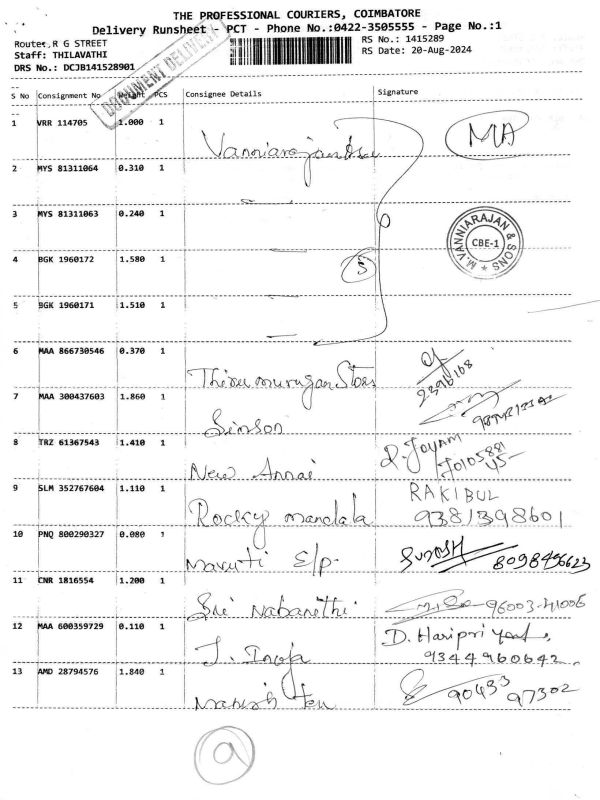 THE PROFESSIONAL COURIERS, COIMBATORE
Delivery Runsheet - PCT - Phone No.:0422-3505555 - Page No.:1
Route: R G STREET
RS No.: 1415289
Staff: THILAVATHI
RS Date: 20-Aug-2024
DRS No.: DCJB141528901
DOCUMENT DELIVERY
S No Consignment No Weight PCS Consignee Details Signature
1 VRR 114705 1.000 1 Vanniarajan MA
2 MYS 81311064 0.310 1
3 MYS 81311063 0.240 1
M.VANNIARAJAN & SONS
CBE-1
4 BGK 1960172 1.580 1 5
5 BGK 1960171 1.510 1
6 MAA 866730546 0.370 1 Thirumurugan Stores
7 MAA 300437603 1.860 1 Simson
8 TRZ 61367543 1.410 1 New Annai
9 SLM 352767604 1.110 1 Rocky mandala RAKIBUL 9381398601
10 PNQ 800290327 0.080 1 Maruti E/p. 8098496623
11 CNR 1816554 1.200 1 Sri Nabarethi 96003-41006
12 MAA 600359729 0.110 1 J. 9344960642
13 AMD 28794576 1.840 1 90433 97302
a